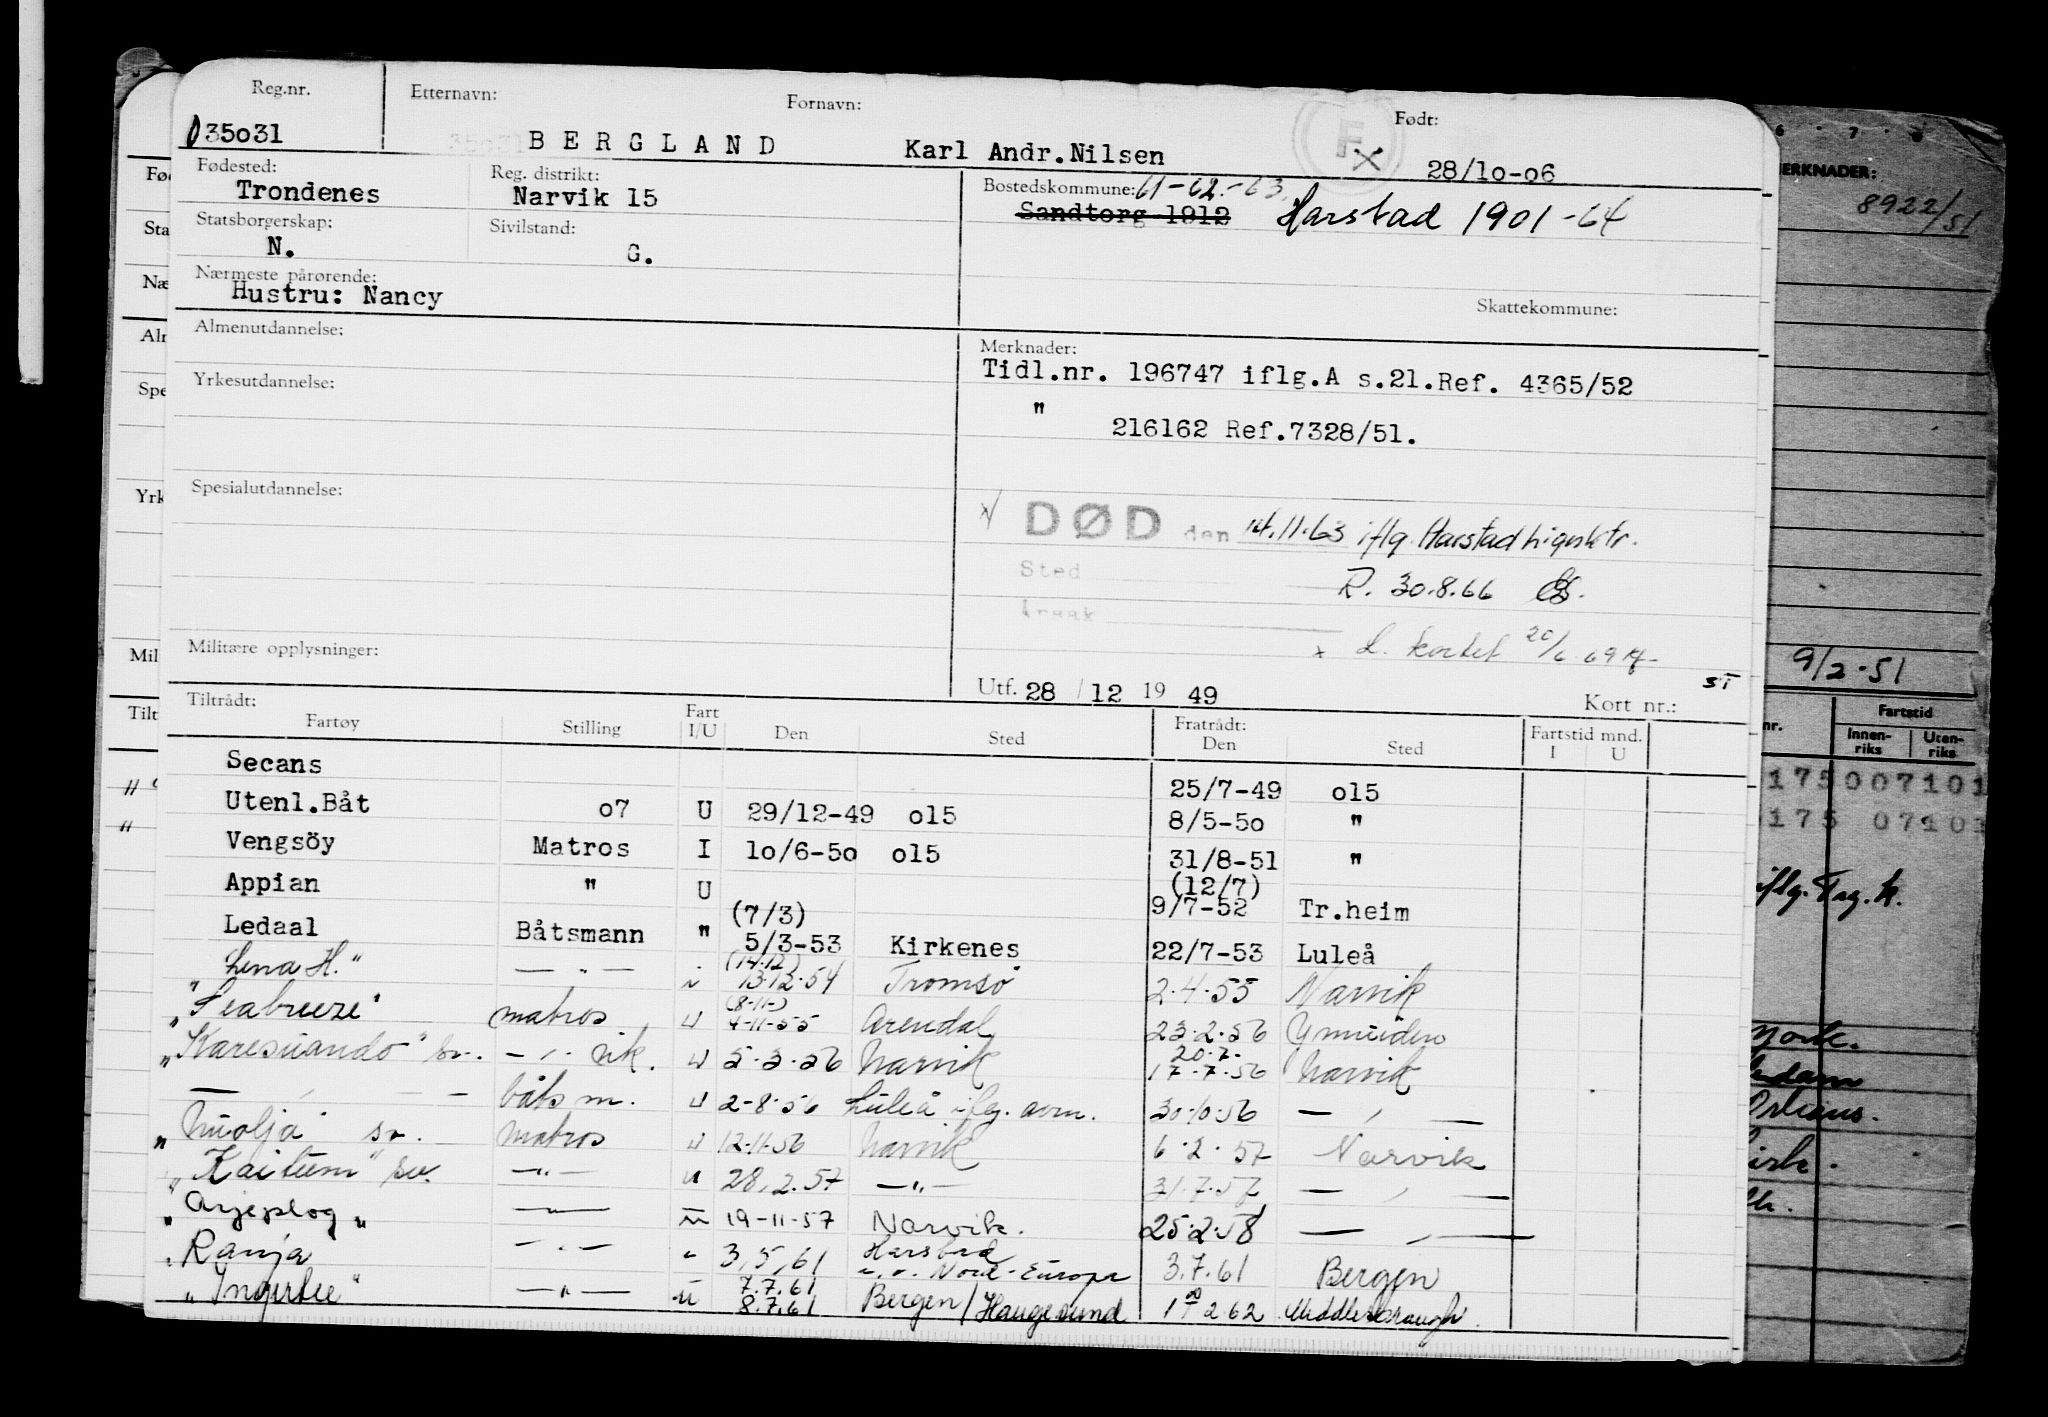 Reg.nr. Etternavn: Fornavn: Født:
035031 BERGLAND Karl Andr.Nilsen 28/10-06
Fødested: Reg. distrikt: Bostedskommune: 61-62.-63.
Trondenes Narvik 15 Sandtorg 1912 Harstad 1901-64
Statsborgerskap: Sivilstand:
N. G.
Nærmeste pårørende:
Hustru: Nancy
Skattekommune:
Almenutdannelse: Merknader:
Tidl.nr. 196747 iflg.A s.21.Ref. 4365/52
Yrkesutdannelse:
" 216162 Ref.7328/51.
Spesialutdannelse:
x/ DØD den 14.11.63 iflg. Harstad lignktr.
Sted R. 30.8.66
Årsak
x L. kortet 20/6 69
Militære opplysninger:
Utf. 28/12 1949 Kort nr.:
Tiltrådt: Fratrådt: Fartstid mnd.
Fartøy Stilling Fart I/U Den Sted Den Sted I U
Secans 25/7-49 o15
Utenl.Båt o7 U 29/12-49 o15 8/5-5o "
Vengsöy Matros I 1o/6-5o o15 31/8-51 "
Appian " U (12/7) 9/7-52 Tr.heim
Ledaal Båtsmann " (7/3) 5/3-53 Kirkenes 22/7-53 Luleå
"Lena H." — " — (14.12) 13.12.54 Tromsø 2.4.55 Narvik
"Seabreeze" matros U (8-11-) 4-11-55 Arendal 23.2.56 Ymuiden
"Karesuando" sv. — " — vik. U 5.3.56 Narvik 20.7. 17.7.56 Narvik
— " — båtsm. U 2-8-56 Luleå iflg. avm. 30.10.56 — " —
"Nuolja sv. matros U 12.11.56 Narvik 6.2.57 Narvik
"Kaitum" sv. — " — U 28.2.57 — " — 31.7.57 — " —
"Arjeplog" — " — U 19-11-57 Narvik. 25.2.58 — " —
"Ranja — " — " 3.5.61 Harstad Nord-Europa 3.7.61 Bergen
"Ingertre" — " — U 7.7.61 8.7.61 Bergen/Haugesund 2.62 Middlesbrough
MERKNADER:
8922/51
9/2-51
Fartstid
Innen-riks Uten-riks